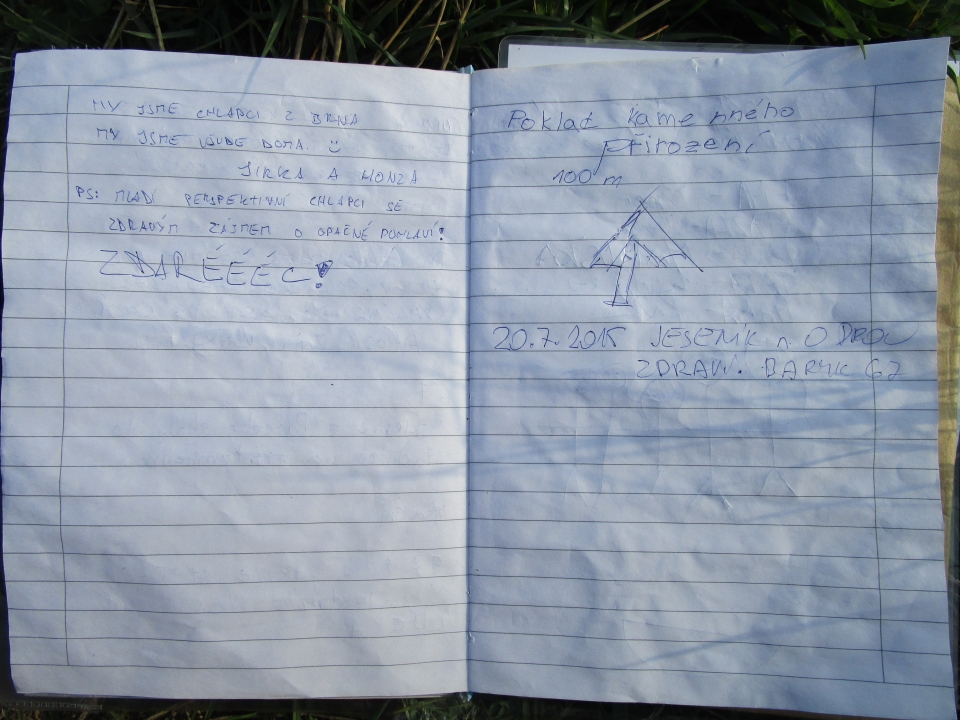 MY JSME CHLAPCI Z BRNA
MY JSME VŠUDE DOMA.
JIRKA A HONZA
PS: MLADÍ PERSPEKTIVNÍ CHLAPCI SE
ZDRAVÝM ZÁJMEM O OPAČNÉ POHLAVÍ!
ZDARÉÉÉC!
Poklad kamenného
přirození
100 m
20.7.2015 JESENÍK n. ODROU
ZDRAVÍ